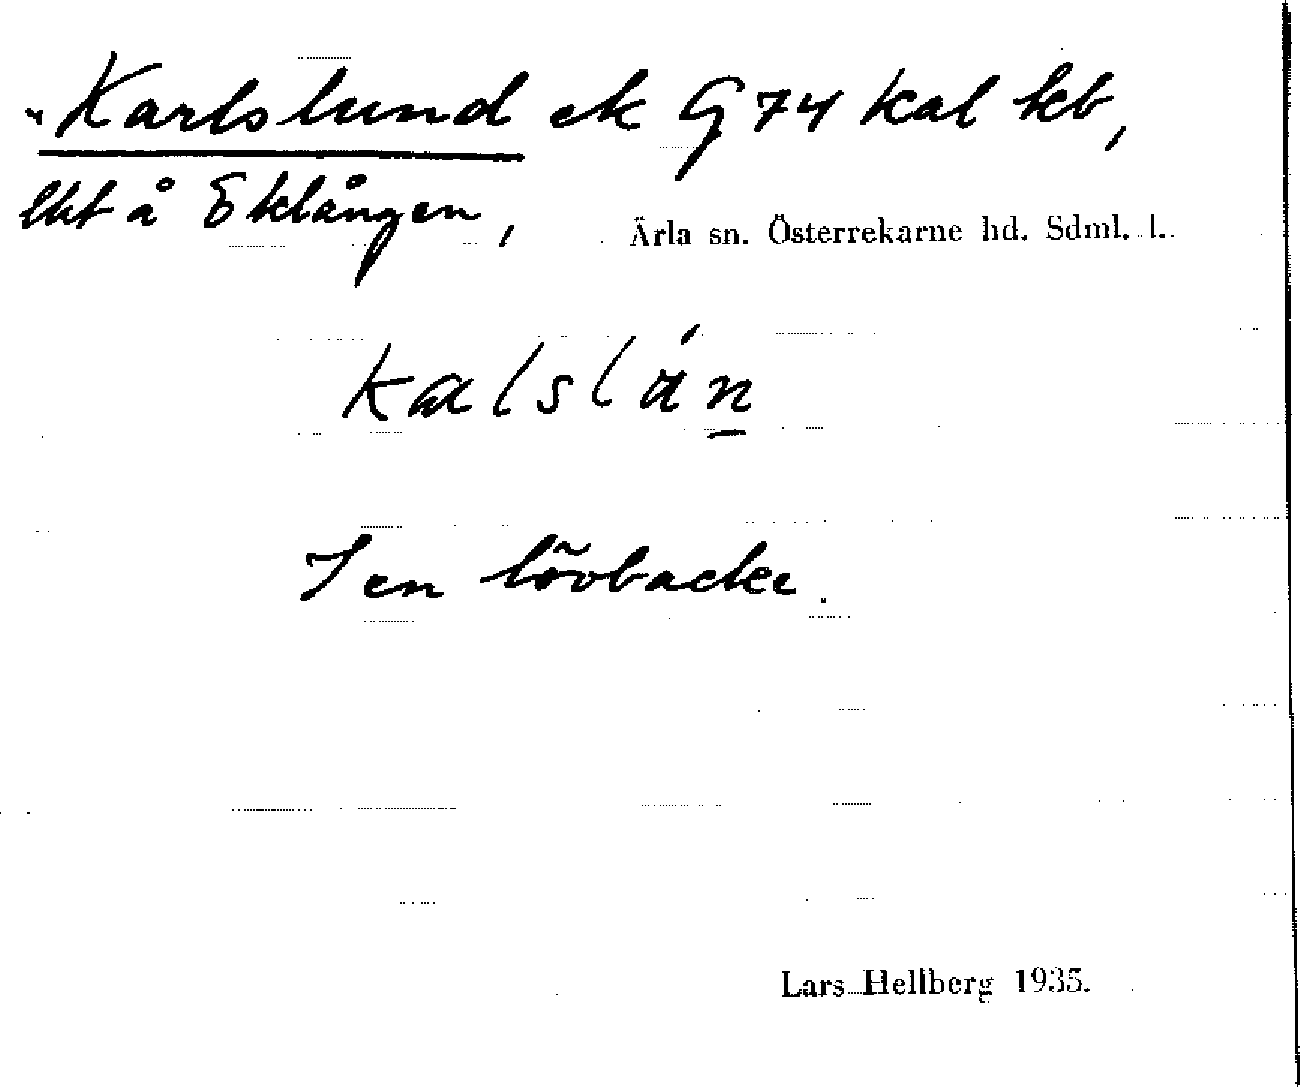 Karlslund ek G 74 kal kb,
lht å Eklången,
Ärla sn. Österrekarne hd. Sdml. l.
kalslán
I en lövbacke.
Lars Hellberg 1935.